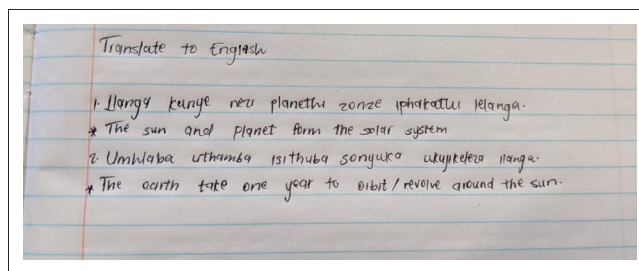 Translate to English
1. Ilanga kunye nezi planethi zonze iphakathi lelanga.
* The sun and planet form the solar system
2. Umhlaba uthamba isithuba sonyaka ukujikeleza ilanga.
* The earth take one year to orbit / revolve around the sun.